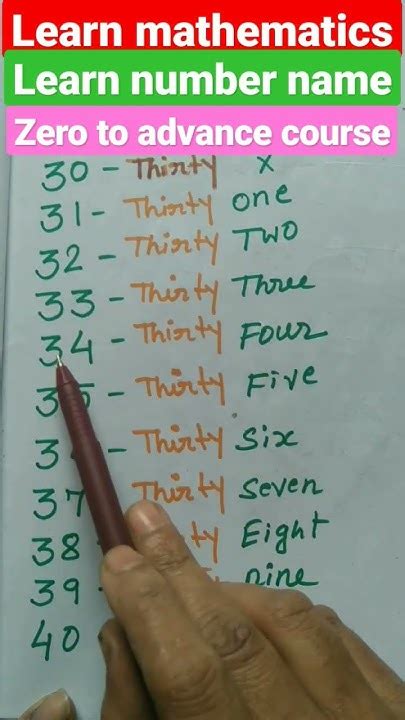 Learn mathematics
Learn number name
Zero to advance course
30 - Thirty x
31 - Thirty one
32 - Thirty TWO
33 - Thirty Three
34 - Thirty Four
35 - Thirty Five
3 - Thirty Six
37 Thirty Seven
38 ty Eight
39 - nine
40